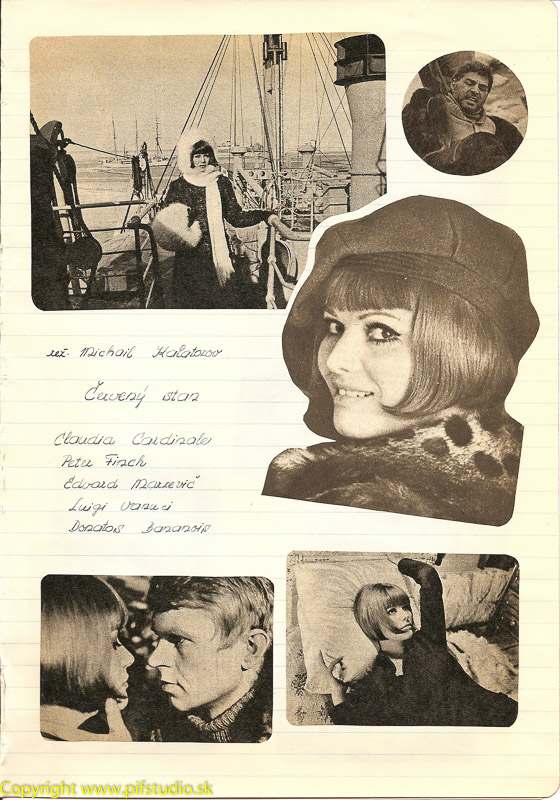 rež. Michail Kalatozov
Červený stan
Claudia Cardinale
Peter Finch
Edvard Marzevič
Luigi Vanuci
Donatas Bananois
Copyright www.pifstudio.sk